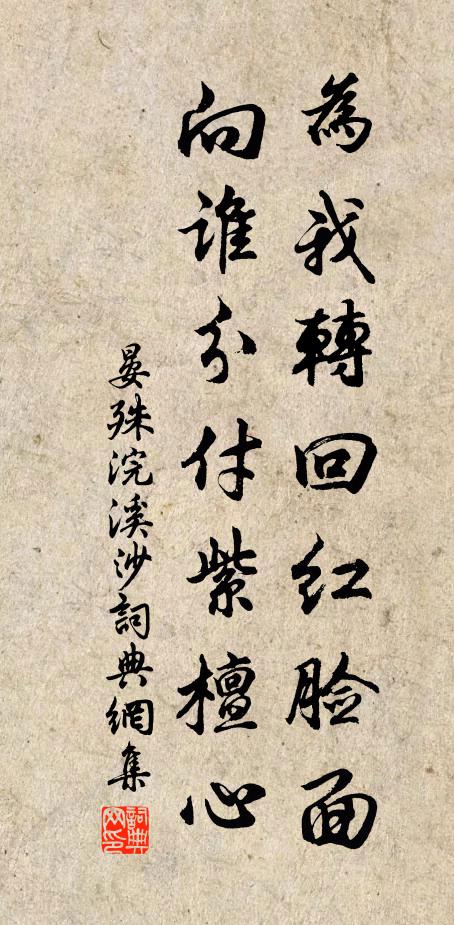 為我轉回红脸面
向谁分付紫檀心
晏殊浣溪沙詞典網集
詞典网印